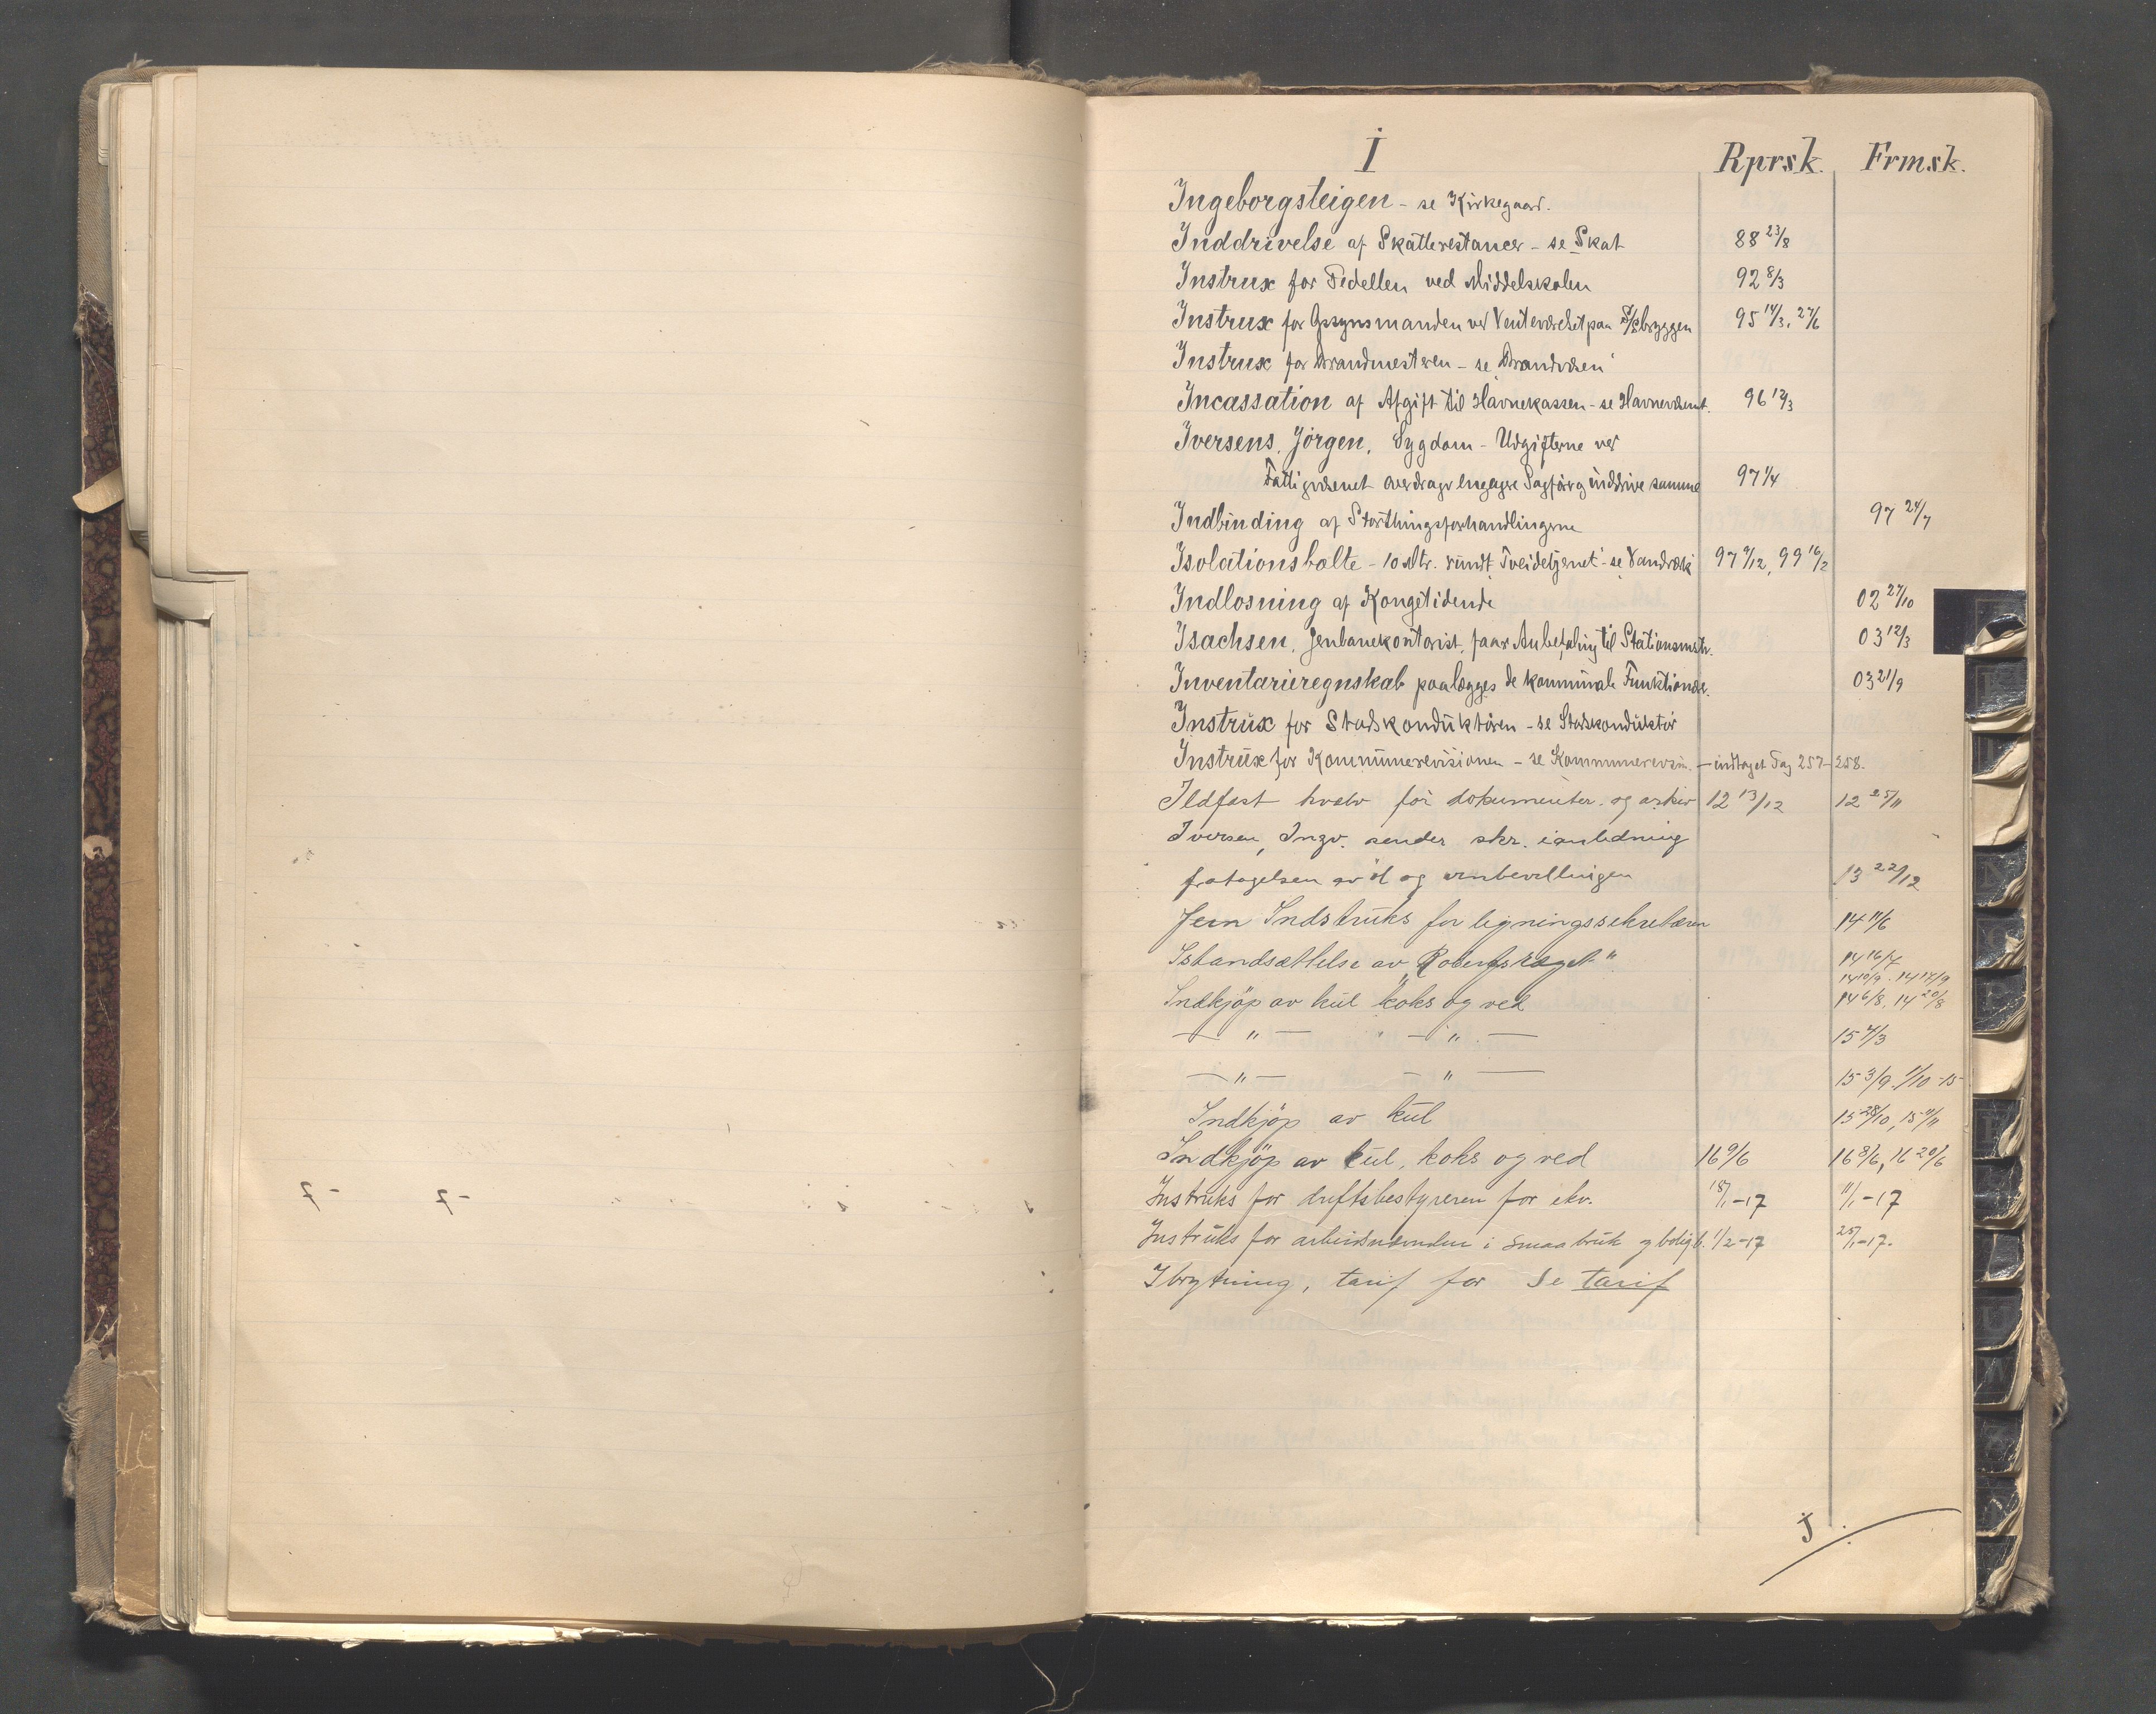 I Rprsk. Frmsk.
Ingeborgsteigen - se Kirkegaard.
Inddrivelse af Skatterestancer - se Skat 88 23/8
Instrux for Pedellen ved Middelskolen 92 8/3
Instrux for Opsynsmanden ved Venteværelset paa D/Sbryggen 95 14/3, 27/6
Instrux for Brandmesteren - se Brandvæsen
Incassation af Afgift til Havnekassen - se Havnevæsenet. 96 12/3
Iversens, Jörgen, Sygdom - Udgifterne ved
Fattigvæsenet overdrages Sagförer inddrive samme 97 1/4
Indbinding af Storthingsforhandlingerne 97 24/7
Isolationsbælte - 10 Mtr. rundt Tveidetjernet - se Vandværk 97 9/12, 99 16/2
Indlosning af Kongetidende 02 27/10
Isachsen, Jenbanekontorist, faar Anbefaling til Stationsmstr. 03 12/3
Inventarieregnskab paalægges de kommunale Funktionær. 03 21/9
Instrux for Stadskonduktören - se Stadskonduktör
Instrux for Kommunerevisionen - se Kommunerevsin. - indtaget Pag 257-258.
Ildfast hvælv for dokumenter og arkiv 12 13/12 12 25/11
Iversen, Ingv. sender skr. i anledning
fratagelsen av öl og vinbevillingen 13 22/12
Indstruks for ligningssekretæren 14 11/6
Istandsættelse av 14 16/7
14 10/9. 14 17/9
Indkjöp av kul koks og ved 14 6/8. 14 20/8
— " — — " — 15 4/3
— " — — " — 15 3/9. 1/10 -15
Indkjöp av kul 15 28/10, 15 11/11
Indkjöp av kul, koks og ved 16 9/6 16 8/6, 16 20/6
Instruks for driftsbestyreren for ekv. 18/1-17 11/1-17
Instruks for arbeidsnevnden i smaabruk og boligb. 1/2-17 25/1-17.
Ibrytning, tarif for Se tarif
J